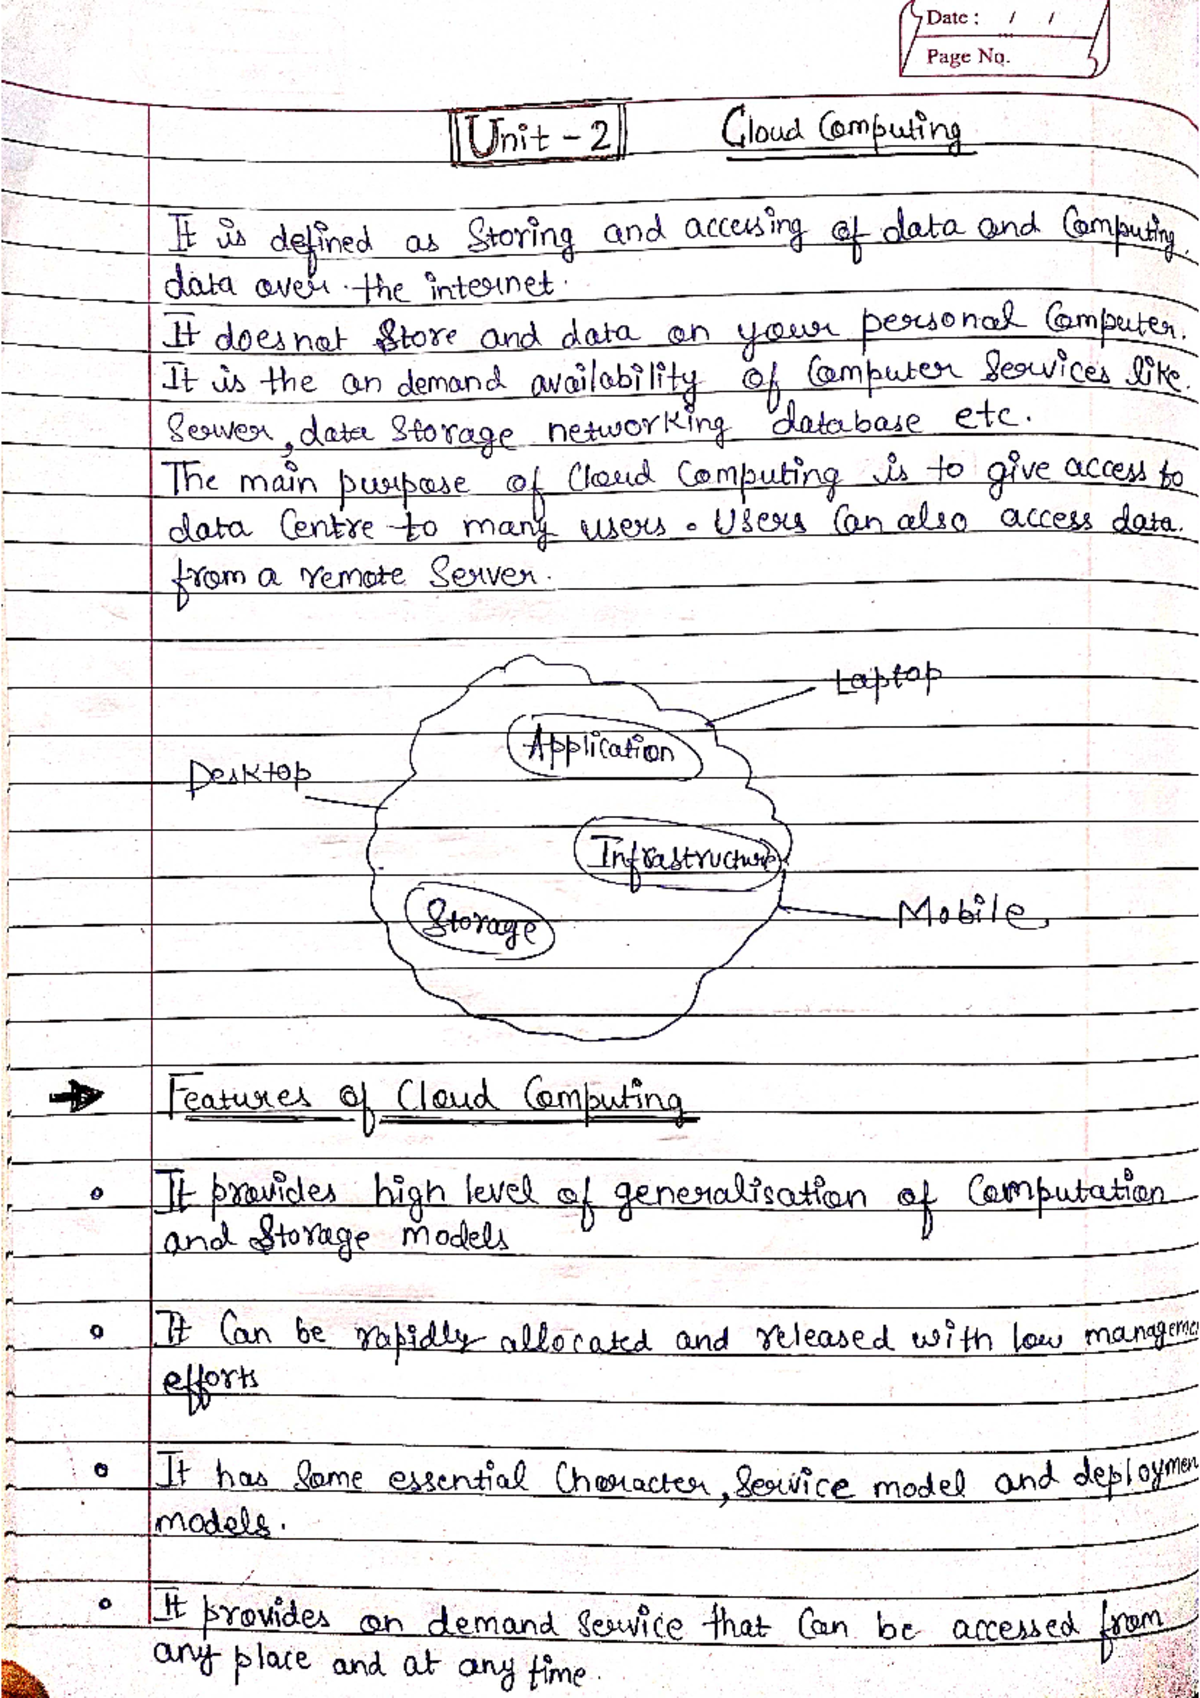 Date : / /
Page No.
Unit - 2 Cloud Computing
It is defined as Storing and accessing of data and Computing
data over the internet.
It does not Store and data on your personal Computer.
It is the on demand availability of Computer Services like
Server, data Storage networking database etc.
The main purpose of Cloud Computing is to give access to
data Centre to many users. Users Can also access data
from a remote Server.
Laptop
Application
Desktop
Infrastructure
Storage
Mobile
Features of Cloud Computing
It provides high level of generalisation of Computation
and Storage models
It Can be rapidly allocated and released with low managemen
efforts
It has Some essential Character, Service model and deploymen
models.
It provides on demand Service that Can be accessed from
any place and at any time.